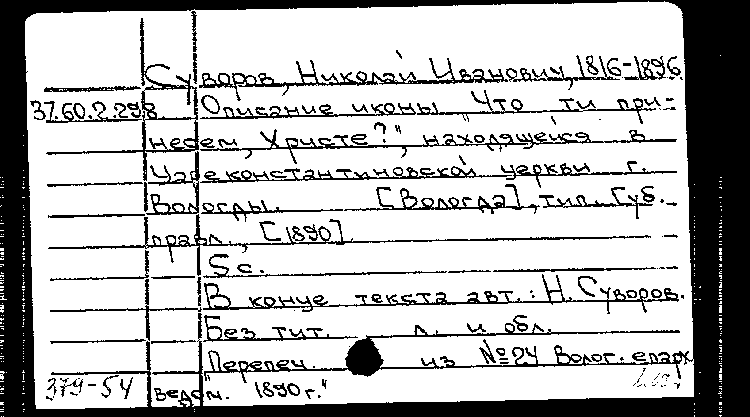 Суворов, Николай Иванович, 1816-1896
37.60.2.298 Описание иконы "Что ти при-
несем, Христе?", находящейся в
Цареконстантиновской церкви г.
Вологды. [Вологда], тип. Губ.
правл., [1890]
5 с.
В конце текста авт.: Н. Суворов.
Без тит. л. и обл.
Перепеч. из №24 Волог. епарх
379-54 ведом. 1890 г."